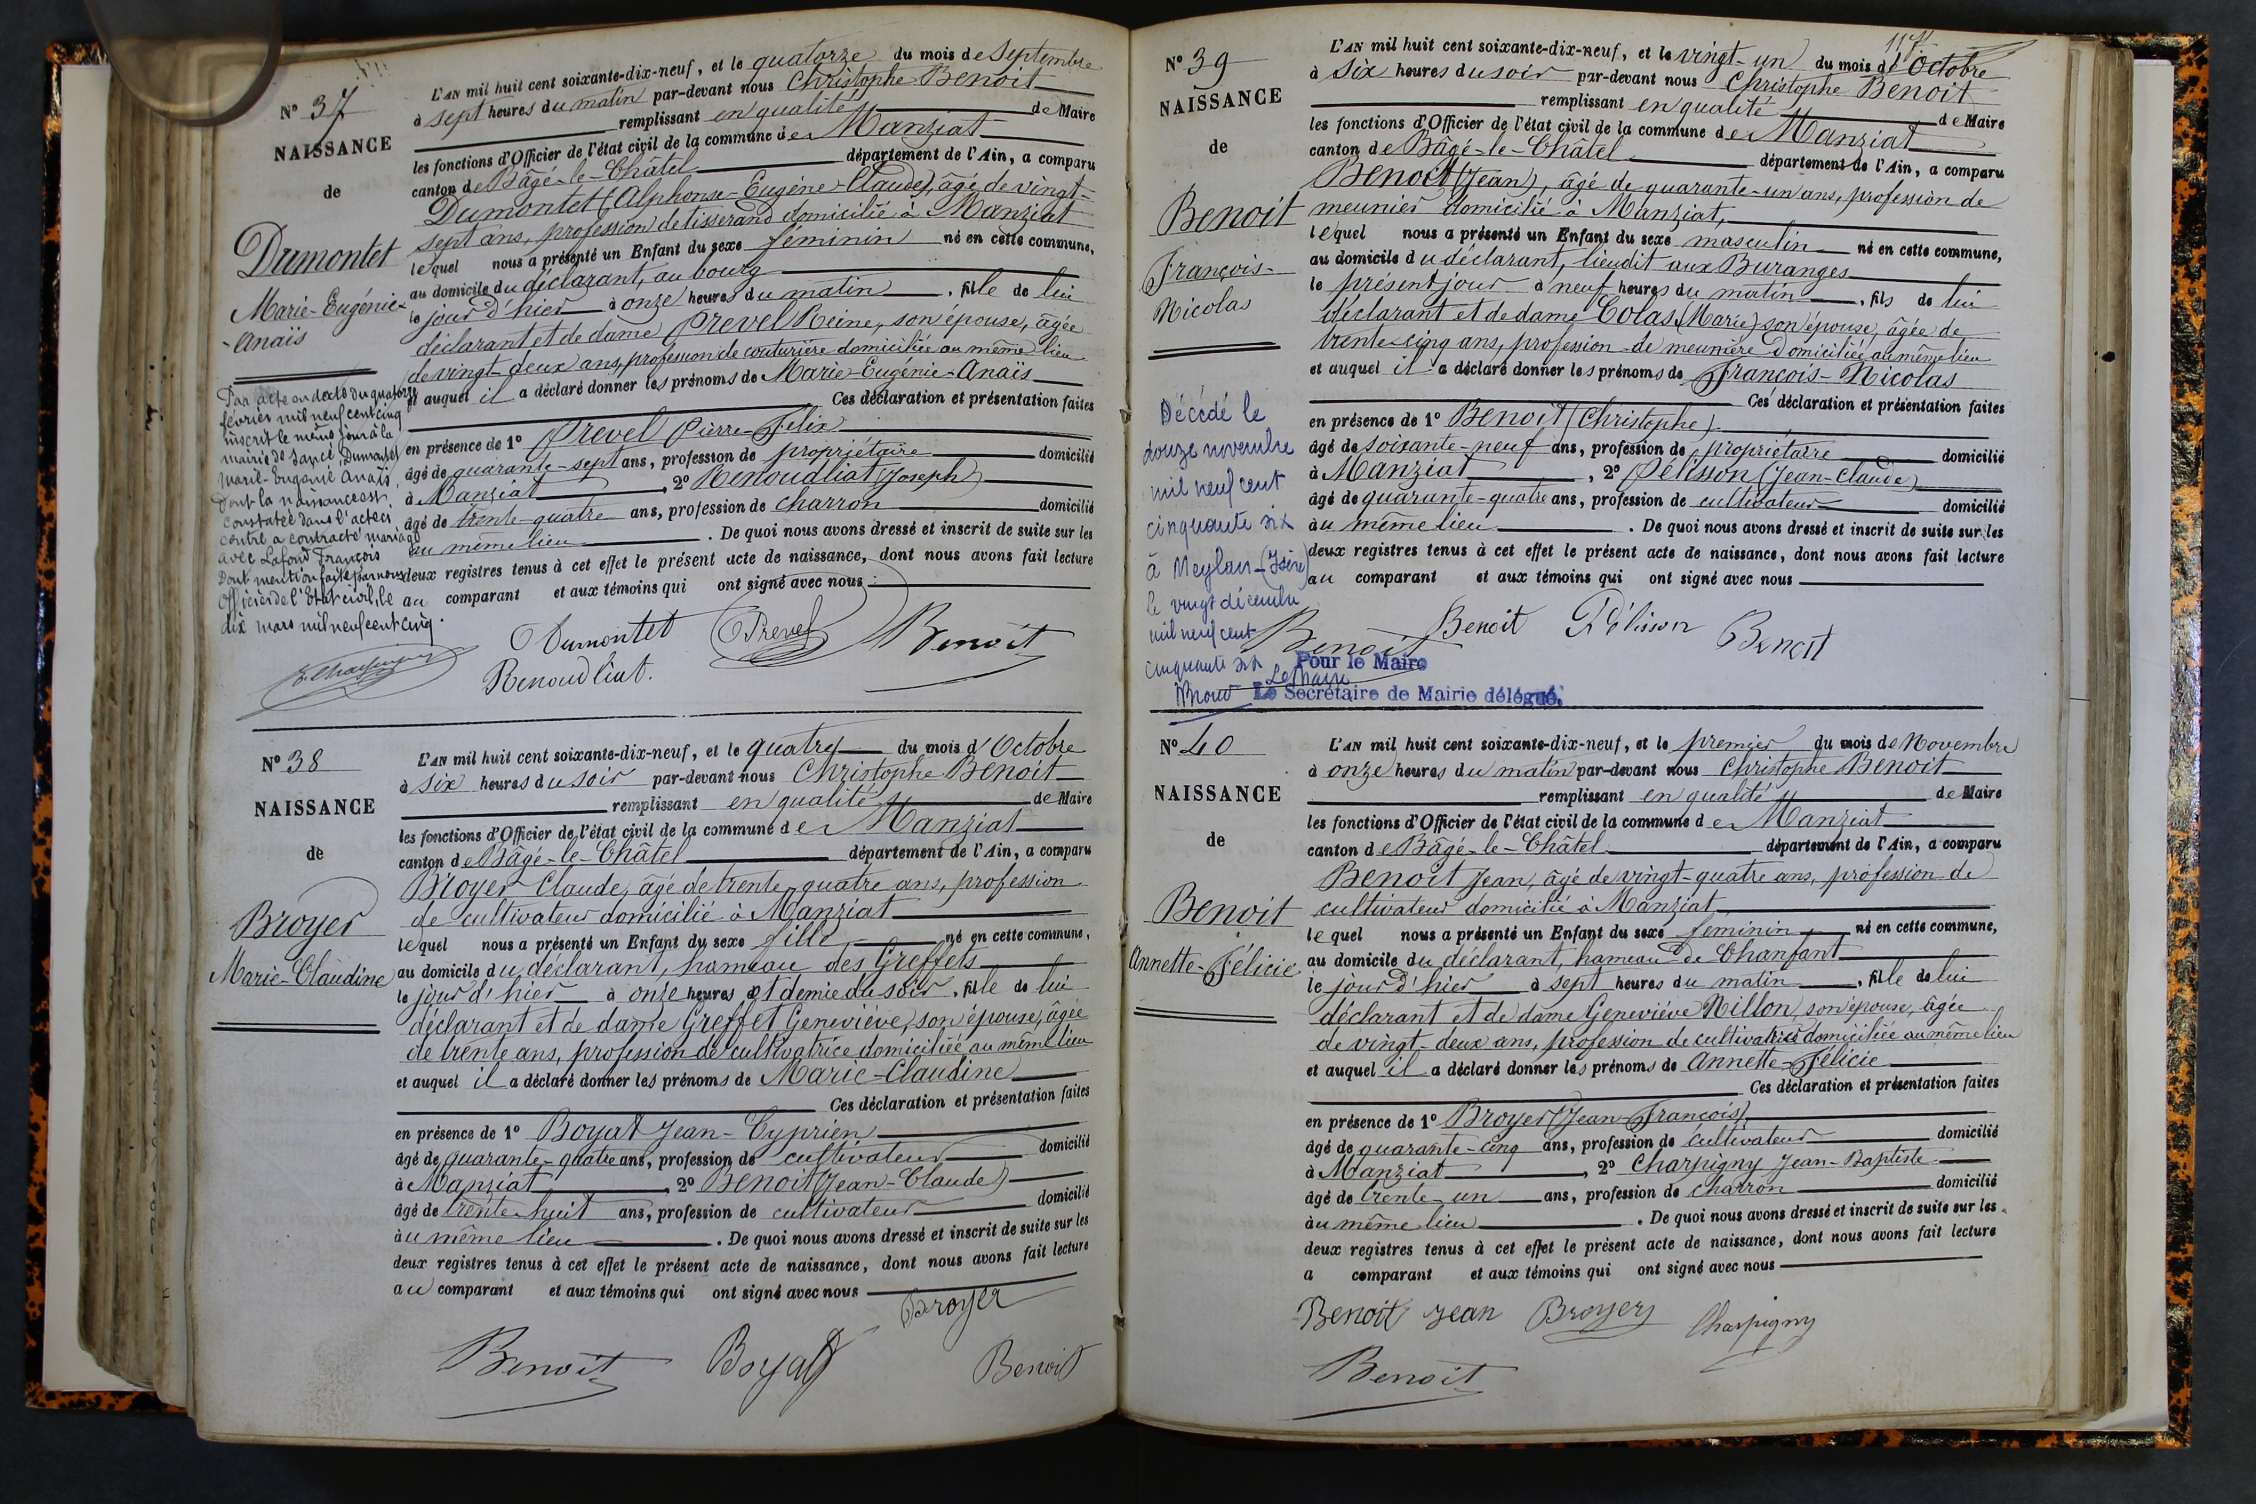 N° 37
NAISSANCE
de
Dumontet
Marie-Eugénie-
-Anaïs
L'AN mil huit cent soixante-dix-neuf, et le quatorze du mois de Septembre
à sept heures du matin par-devant nous Christophe Benoit
remplissant en qualité de Maire
les fonctions d'Officier de l'état civil de la commune de Manziat
canton de Bâgé-le-Châtel département de l'Ain, a comparu
Dumontet (Alphonse-Eugène-Claude), âgé de vingt-
sept ans, profession de tisserand domicilié à Manziat
lequel nous a présenté un Enfant du sexe féminin né en cette commune,
au domicile du déclarant, au bourg
le jour d'hier à onze heures du matin, fille de lui
déclarant et de dame Prevel Reine, son épouse, âgée
de vingt-deux ans, profession de couturière domiciliée au même lieu
et auquel il a déclaré donner les prénoms de Marie-Eugénie-Anaïs
Ces déclaration et présentation faites
en présence de 1° Prevel Pierre-Félix
âgé de quarante-sept ans, profession de propriétaire domicilié
à Manziat, 2° Renoudliat (Joseph)
âgé de trente-quatre ans, profession de charron domicilié
au même lieu. De quoi nous avons dressé et inscrit de suite sur les
deux registres tenus à cet effet le présent acte de naissance, dont nous avons fait lecture
au comparant et aux témoins qui ont signé avec nous
Par acte en date du quatorze
février mil neuf cent cinq
inscrit le même jour à la
mairie de Sancé, Dumontet
Marie-Eugénie Anaïs,
dont la naissance est
constatée dans l'acte ci
contre a contracté mariage
avec Lafond François
Dont mention faite par nous
Officier de l'Etat civil, le
dix mars mil neuf cent cinq.
Dumontet Prevel Benoit
Renoudliat.
N° 38
NAISSANCE
de
Broyer
Marie-Claudine
L'AN mil huit cent soixante-dix-neuf, et le quatre du mois d'Octobre
à six heures du soir par-devant nous Christophe Benoit
remplissant en qualité de Maire
les fonctions d'Officier de l'état civil de la commune de Manziat
canton de Bâgé-le-Châtel département de l'Ain, a comparu
Broyer Claude, âgé de trente-quatre ans, profession
de cultivateur domicilié à Manziat
lequel nous a présenté un Enfant du sexe fille né en cette commune,
au domicile du déclarant, hameau des Greffets
le jour d'hier à onze heures et demie du soir, fille de lui
déclarant et de dame Greffet Geneviève, son épouse, âgée
de trente ans, profession de cultivatrice domiciliée au même lieu
et auquel il a déclaré donner les prénoms de Marie-Claudine
Ces déclaration et présentation faites
en présence de 1° Boyat Jean-Cyprien
âgé de quarante-quatre ans, profession de cultivateur domicilié
à Manziat, 2° Benoit (Jean-Claude)
âgé de trente-huit ans, profession de cultivateur domicilié
au même lieu. De quoi nous avons dressé et inscrit de suite sur les
deux registres tenus à cet effet le présent acte de naissance, dont nous avons fait lecture
au comparant et aux témoins qui ont signé avec nous
Broyer
Benoit Boyat Benoit
117
N° 39
NAISSANCE
de
Benoit
François-
Nicolas
L'AN mil huit cent soixante-dix-neuf, et le vingt-un du mois d'Octobre
à six heures du soir par-devant nous Christophe Benoit
remplissant en qualité de Maire
les fonctions d'Officier de l'état civil de la commune de Manziat
canton de Bâgé-le-Châtel département de l'Ain, a comparu
Benoit (Jean), âgé de quarante-un ans, profession de
meunier domicilié à Manziat,
lequel nous a présenté un Enfant du sexe masculin né en cette commune,
au domicile du déclarant, lieudit aux Buranges
le présent jour à neuf heures du matin, fils de lui
déclarant et de dame Colas (Marie) son épouse, âgée de
trente-cinq ans, profession de meunière domiciliée au même lieu
et auquel il a déclaré donner les prénoms de François-Nicolas
Ces déclaration et présentation faites
en présence de 1° Benoit (Christophe)
âgé de soixante-neuf ans, profession de propriétaire domicilié
à Manziat, 2° Pélisson (Jean-Claude)
âgé de quarante-quatre ans, profession de cultivateur domicilié
au même lieu. De quoi nous avons dressé et inscrit de suite sur les
deux registres tenus à cet effet le présent acte de naissance, dont nous avons fait lecture
au comparant et aux témoins qui ont signé avec nous
Décédé le
douze novembre
mil neuf cent
cinquante six
à Meylan (Isère)
le vingt décembre
mil neuf cent
cinquante six
Le Maire
Benoit Benoit Pélisson Benoit
Pour le Maire
Le Secrétaire de Mairie délégué,
N° 40
NAISSANCE
de
Benoit
Annette-Félicie
L'AN mil huit cent soixante-dix-neuf, et le premier du mois de Novembre
à onze heures du matin par-devant nous Christophe Benoit
remplissant en qualité de Maire
les fonctions d'Officier de l'état civil de la commune de Manziat
canton de Bâgé-le-Châtel département de l'Ain, a comparu
Benoit Jean, âgé de vingt-quatre ans, profession de
cultivateur domicilié à Manziat
lequel nous a présenté un Enfant du sexe féminin né en cette commune,
au domicile du déclarant, hameau de Chanfant
le jour d'hier à sept heures du matin, fille de lui
déclarant et de dame Geneviève Nillon, son épouse, âgée
de vingt-deux ans, profession de cultivatrice domiciliée au même lieu
et auquel il a déclaré donner les prénoms de Annette-Félicie
Ces déclaration et présentation faites
en présence de 1° Broyer (Jean-François)
âgé de quarante-cinq ans, profession de cultivateur domicilié
à Manziat, 2° Charpigny Jean-Baptiste
âgé de trente-un ans, profession de charron domicilié
au même lieu. De quoi nous avons dressé et inscrit de suite sur les
deux registres tenus à cet effet le présent acte de naissance, dont nous avons fait lecture
a comparant et aux témoins qui ont signé avec nous
Benoit Jean Broyer Charpigny
Benoit